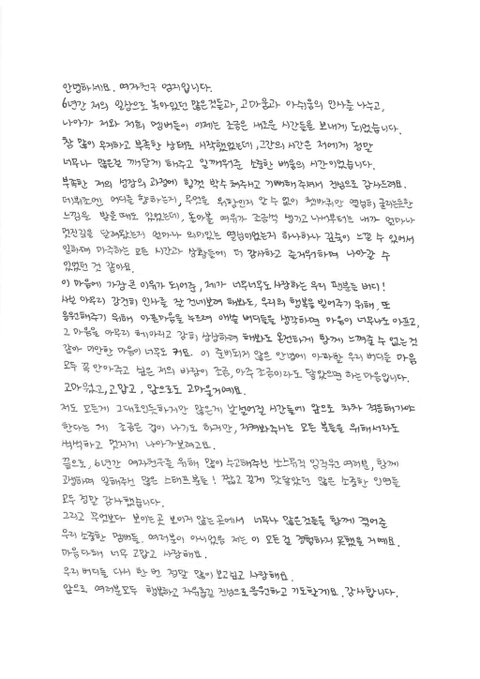 안녕하세요. 여자친구 엄지입니다.
6년간 저의 일상으로 녹아있던 많은것들과, 고마움과 아쉬움의 인사를 나누고,
나아가 저와 저희 멤버들이 이제는 조금은 새로운 시간들을 보내게 되었습니다.
참 많이 무지하고 부족한 상태로 시작했었는데, 그간의 시간은 저에게 정말
너무나 많은걸 깨닫게 해주고 일깨워준 소중한 배움의 시간이었습니다.
부족한 저의 성장의 과정에 힘껏 박수 쳐주시고 기뻐해 주셔서 진심으로 감사드려요.
데뷔초에는 어디를 향하는지, 무엇을 위함인지 알 수 없이 쳇바퀴만 열심히 굴리는듯한
느낌을 받을 때도 있었는데, 돌아볼 여유가 조금씩 생기고 나서부터는 내가 얼마나
멋진길을 달려왔는지 얼마나 의미있는 열심이었는지 하나하나 깊숙이 느낄 수 있어서
일하며 마주하는 모든 시간과 상황들에 더 감사하고 즐거워하며 나아갈 수
있었던 것 같아요.
이 마음에 가장 큰 이유가 되어준, 제가 너무너무도 사랑하는 우리 팬분들 버디!
사실 아무리 강건히 인사를 잘 건네보려 해봐도, 우리의 행복을 빌어주기 위해, 또
응원해주기 위해 아픈마음을 누르며 애쓸 버디들을 생각하면 마음이 너무나도 아프고,
그 마음을 아무리 헤아리고 감히 상상하려 해봐도 온전하게 함께 느껴줄 수 없는것
같아 미안한 마음이 너무도 커요. 이 준비되지 않은 안녕에 아파할 우리 버디들 마음
모두 꼭 안아주고 싶은 저의 바람이 조금, 아주 조금이라도 닿았으면 하는마음입니다.
고마웠고, 고맙고, 앞으로도 고마울거예요.
저도 모든게 그대로인듯하지만 많은게 낯설어질 시간들에 앞으로 차차 적응해가야
한다는 게 조금은 겁이 나기도 하지만, 지켜봐주시는 모든 분들을 위해서라도
씩씩하고 멋지게 나아가보려고요.
끝으로, 6년간 여자친구를 위해 많이 수고해주신 쏘스뮤직 임직원 여러분, 함께
고생하며 일해주신 많은 스태프분들! 짧고 길게 맞닿았던 많은 소중한 인연들
모두 정말 감사했습니다.
그리고 무엇보다 보이는곳 보이지 않는 곳에서 너무나 많은것들을 함께 겪어준
우리 소중한 멤버들. 여러분이 아니었음 저는 이 모든 걸 경험하지 못했을 거예요.
마음다해 너무 고맙고 사랑해요.
우리 버디들 다시 한 번 정말 많이 보고싶고 사랑해요.
앞으로 여러분모두 행복하고 자유롭길 진심으로 응원하고 기도할게요. 감사합니다.